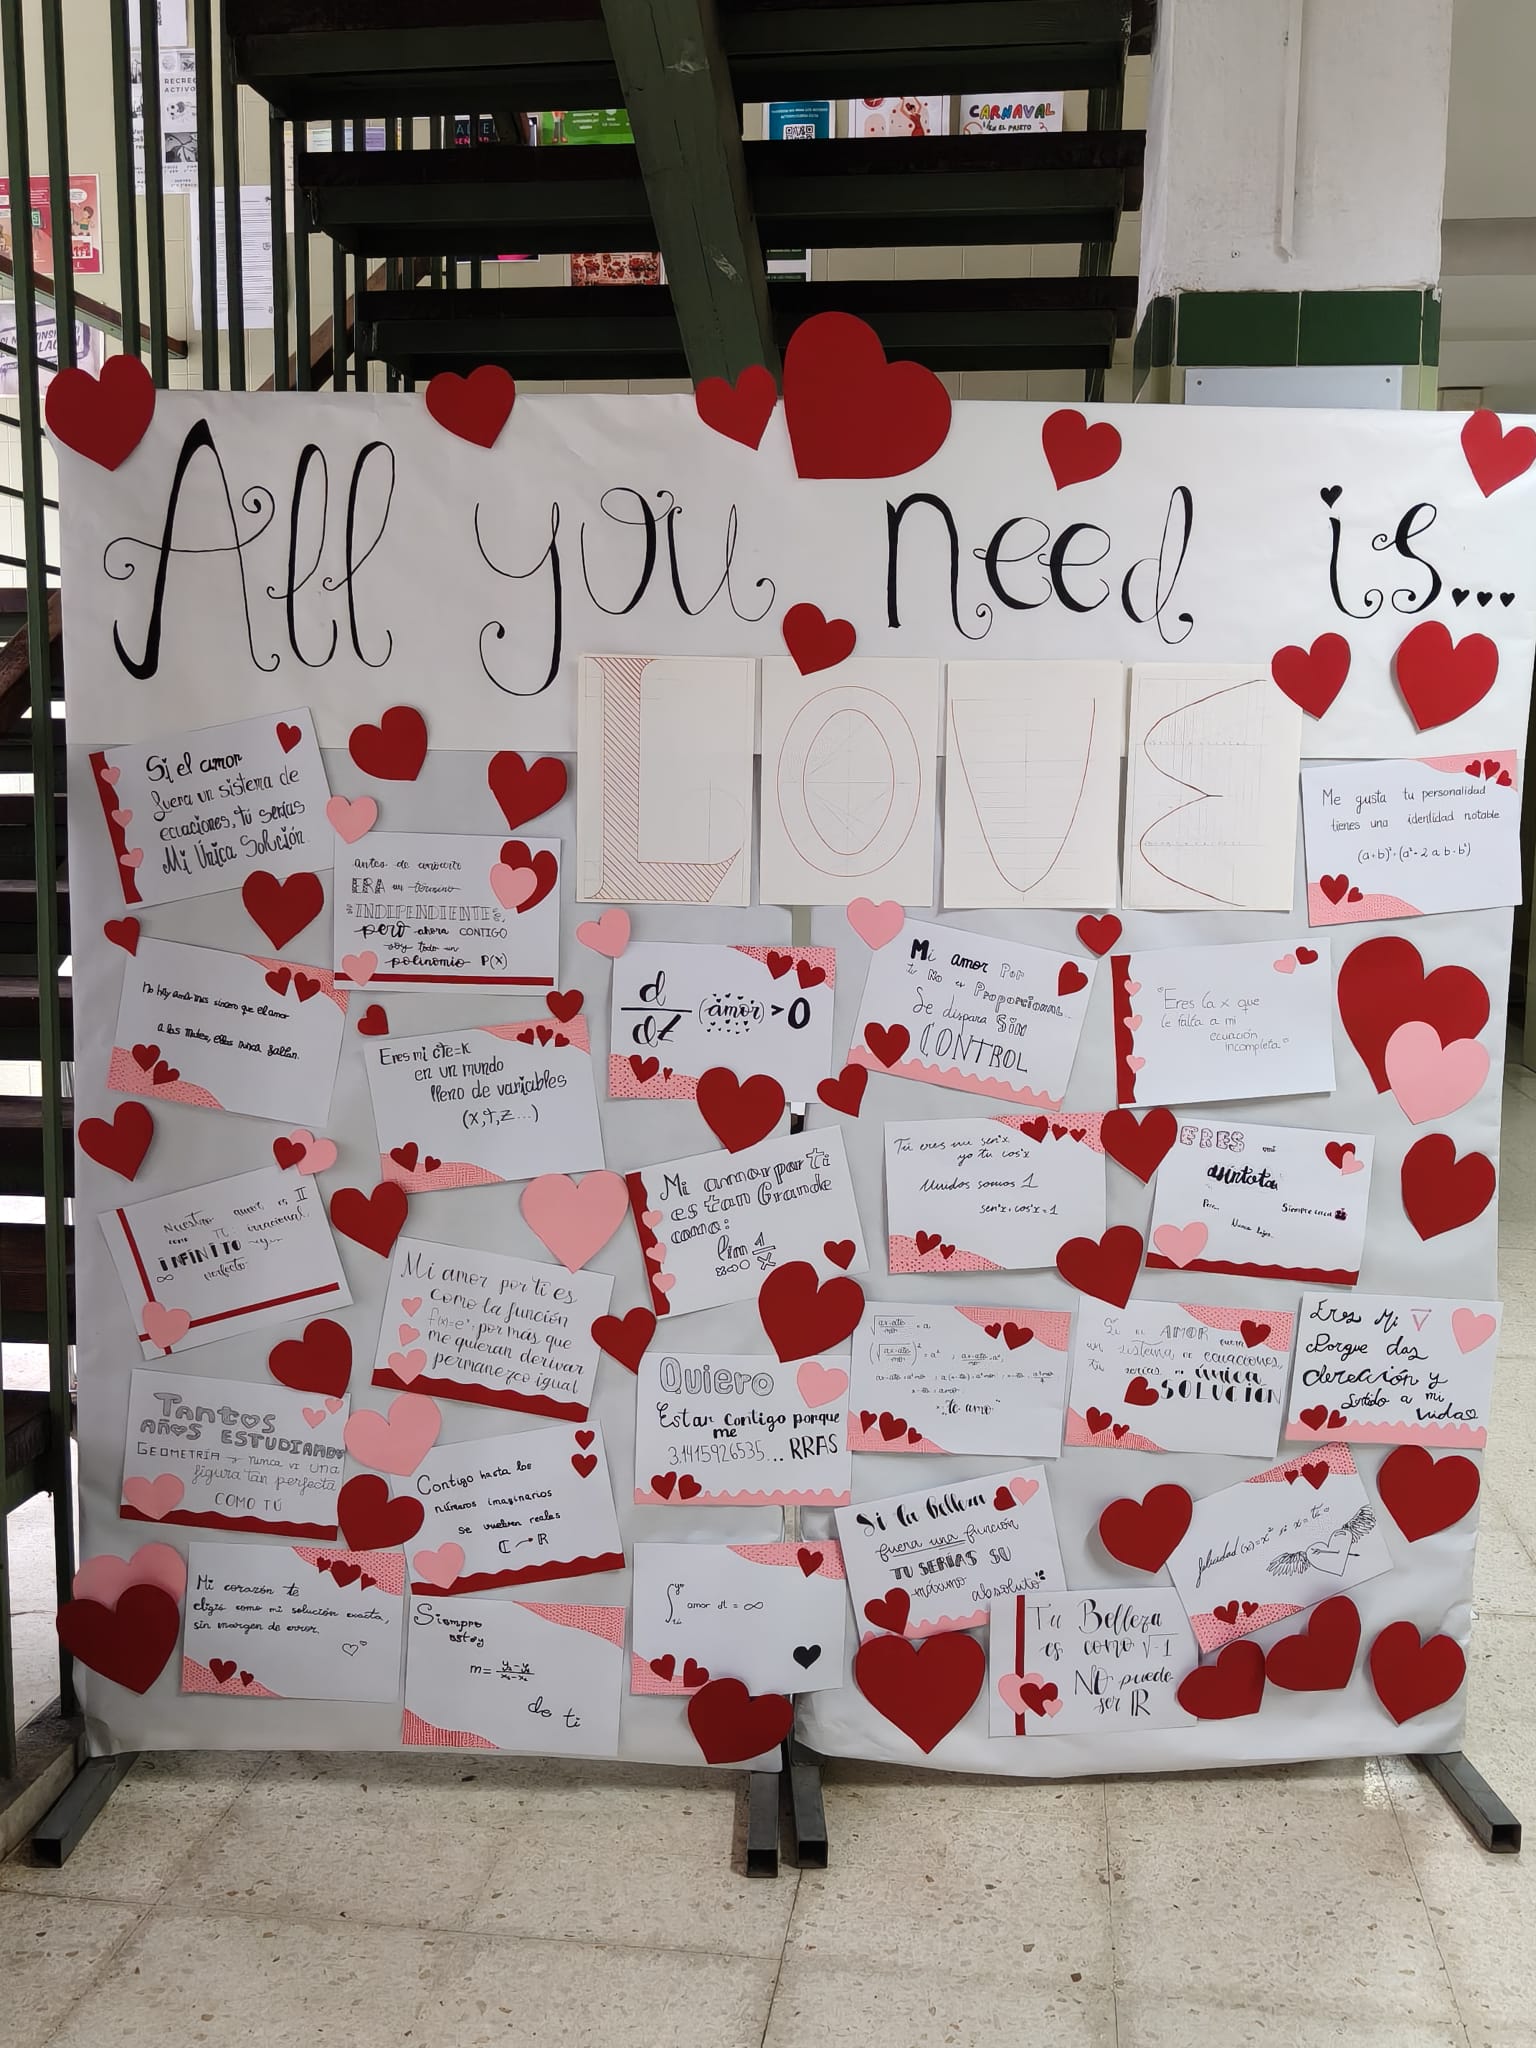 RECREO
ACTIVO
CARNAVAL
EN EL PRIETO
All you need is...
LOVE
Si el amor
fuera un sistema de
ecuaciones, tú serías
Mi Única Solución.
antes de conocerte
ERA un término
INDIPENDIENTE,
pero ahora CONTIGO
soy todo un
polinomio P(x)
Me gusta tu personalidad
tienes una identidad notable
No hay amor más sincero que el amor
a las mates, ellas nunca fallan.
Eres mi cte=K
en un mundo
lleno de variables
(x, t, z...)
d/dt (amor) > 0
Mi amor por
ti No es Proporcional...
Se dispara SIN
CONTROL
"Eres la x que
le falta a mi
ecuación
incompleta"
Nuestro amor es
como π: irracional,
INFINITO y
∞ perfecto.
Mi amor por ti es
como la función
f(x)=eˣ, por más que
me quieran derivar
permanezco igual
Mi amor por ti
es tan Grande
como:
lim 1/x
x→0
Tú eres mi sen²x
yo tu cos²x
Unidos somos 1
sen²x + cos²x = 1
ERES mi
asíntota
Pero...
Siempre cerca
Nunca lejos.
Tantos
AÑOS ESTUDIANDO
GEOMETRÍA → nunca vi UNA
figura tan perfecta
COMO TÚ
Contigo hasta los
números imaginarios
se vuelven reales
ℂ → ℝ
Quiero
Estar contigo porque
me
3.1415926535... RRAS
"te amo"
Si el AMOR fuera
un sistema de ecuaciones,
tú serías mi única
SOLUCIÓN
Eres Mi V⃗
Porque das
dirección y
Sentido a mi
vida
Mi corazón te
eligió como mi solución exacta,
sin margen de error.
Siempre
estoy
m = (y₂ - y₁)/(x₂ - x₁)
de ti
amor dt = ∞
Si la Belleza
fuera una función
TU SERÍAS SU
máximo absoluto
felicidad (x) = x² si x = tú
Tu Belleza
es como √-1
NO puede
ser ℝ